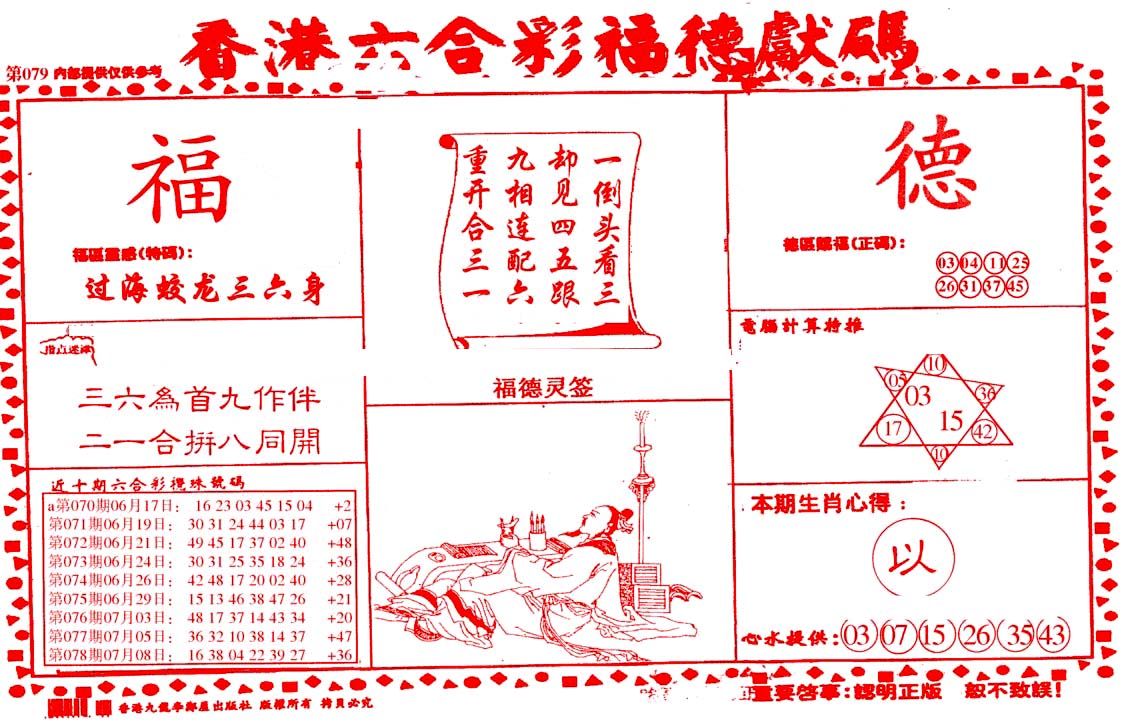 香港六合彩福德獻碼
第079 内部提供仅供参考
福
福區靈感(特碼):
过海蛟龙三六身
三六為首九作伴
二一合拼八同開
近十期六合彩攪珠號碼
a第070期06月17日: 16 23 03 45 15 04 +2
第071期06月19日: 30 31 24 44 03 17 +07
第072期06月21日: 49 45 17 37 02 40 +48
第073期06月24日: 30 31 25 35 18 24 +36
第074期06月26日: 42 48 17 20 02 40 +28
第075期06月29日: 15 13 46 38 47 26 +21
第076期07月03日: 48 17 37 14 43 34 +20
第077期07月05日: 36 32 10 38 14 37 +47
第078期07月08日: 16 38 04 22 39 27 +36
一倒头看三
却见四五跟
九相连配六
重开合三一
福德灵签
德
德區賜福(正碼):
03 04 11 25
26 31 37 45
電腦計算特推
10
05 03 36
17 15 42
10
本期生肖心得:
以
心水提供: 03 07 15 26 35 43
重要啓事:認明正版 恕不致誤!
出版社 版權所有 拷貝必究